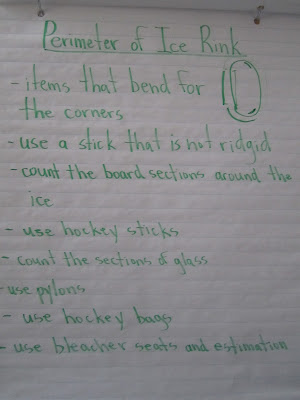 Perimeter of Ice Rink
- items that bend for
the corners
- use a stick that is not ridgid
- count the board sections around the
ice
- use hockey sticks
- count the sections of glass
- use pylons
- use hockey bags
- use bleacher seats and estimation